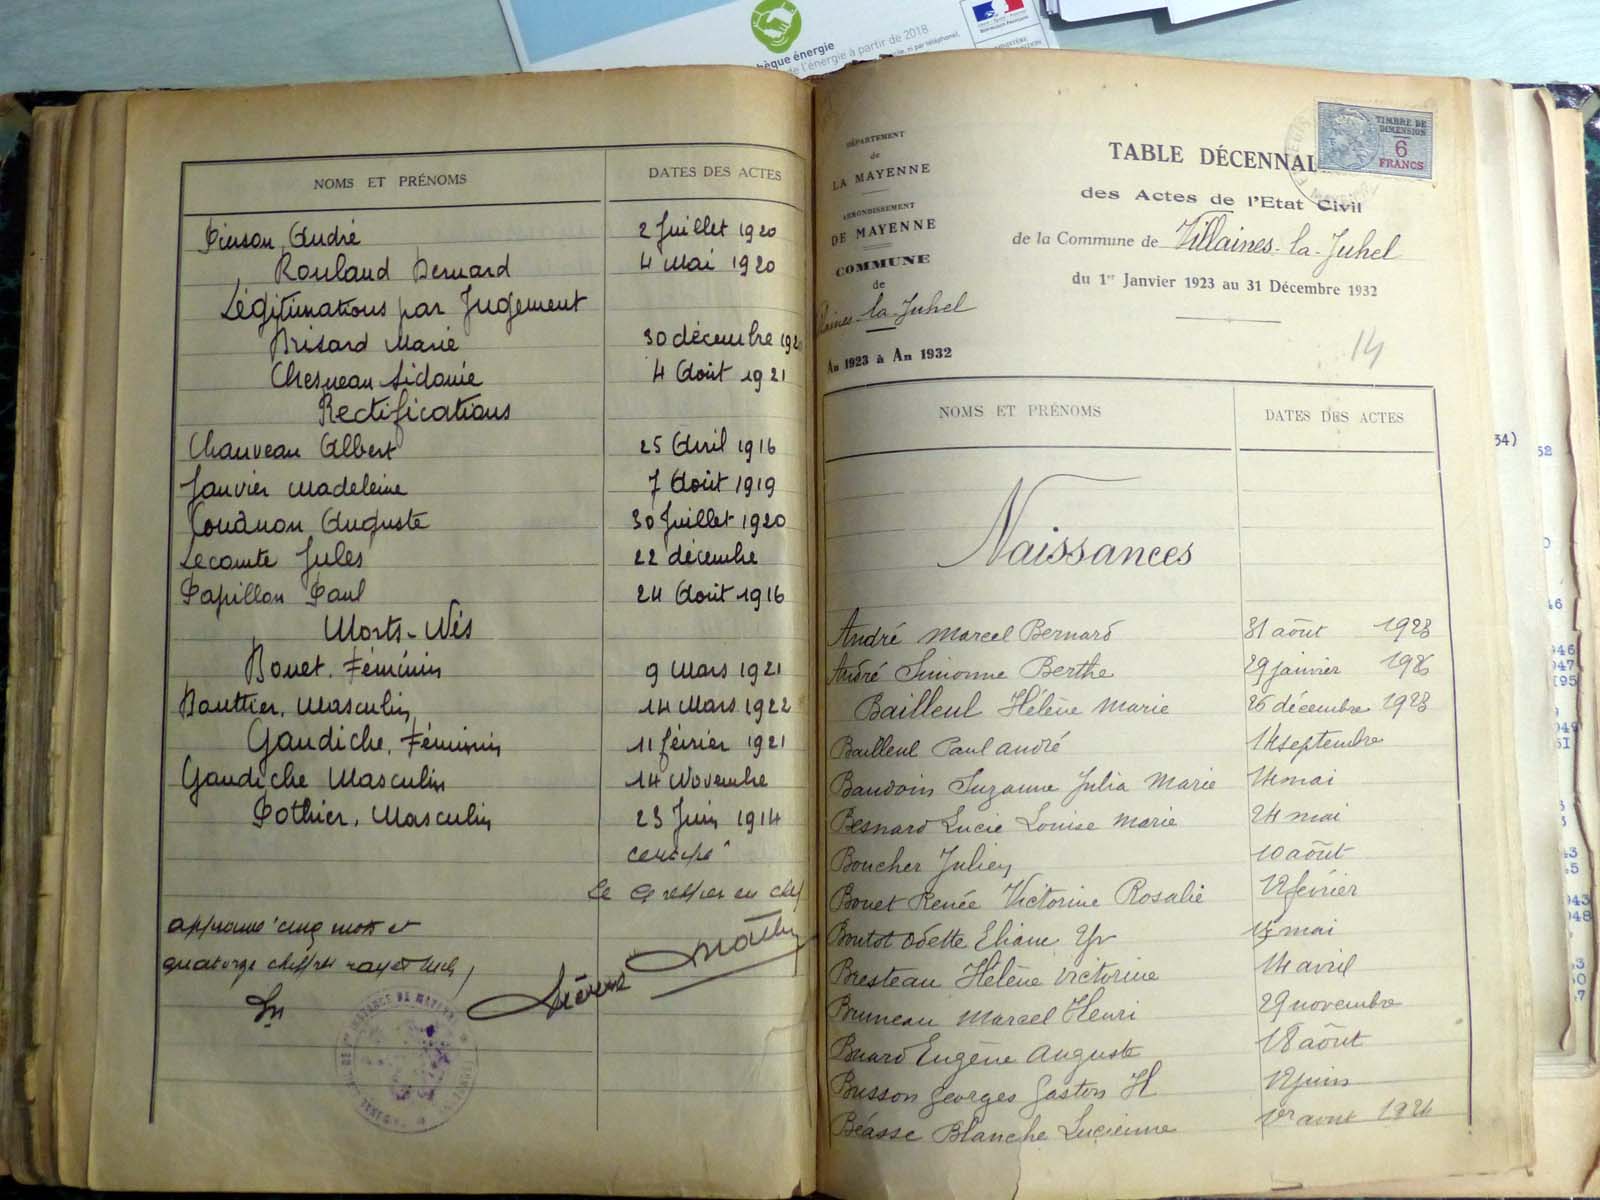 bèque énergie
de l'énergie à partir de 2018
ni par téléphone,
NOMS ET PRÉNOMS DATES DES ACTES
Pinson, André 2 Juillet 1920
Rouland Bernard 4 Mai 1920
Légitimations par Jugement
Brisard Marie 30 décembre 192
Chesneau Sidonie 4 Août 1921
Rectifications
Chauveau Albert 25 Avril 1916
Janvier Madeleine 7 Août 1919
Auguste 30 Juillet 1920
Lecomte Jules 22 décembre
Papillon Paul 24 Août 1916
Morts-Nés
Bouet. Féminin 9 Mars 1921
Bauthier. Masculin 14 Mars 1922
Gaudiche. Féminin 11 février 1921
Gaudiche Masculin 14 Novembre
Pothier. Masculin 23 Juin 1914
Le Greffier en chef
approuvé cinq mots et
quatorze chiffres rayés nuls
DÉPARTEMENT
de
LA MAYENNE
ARRONDISSEMENT
DE MAYENNE
COMMUNE
de
laines-la-Juhel
An 1923 à An 1932
TABLE DÉCENNAL
des Actes de l'Etat Civil
de la Commune de Villaines-la-Juhel
du 1er Janvier 1923 au 31 Décembre 1932
TIMBRE DE
DIMENSION
6
FRANCS
14
NOMS ET PRÉNOMS DATES DES ACTES
Naissances
André Marcel Bernard 31 août 1923
André Simonne Berthe 29 janvier 1926
Bailleul Hélène Marie 26 décembre 1923
Bailleul Paul André 14 septembre
Baudoin Suzanne Julia Marie 14 mai
Besnard Lucie Louise Marie 24 mai
Boucher Julien 10 août
Bouet Renée Victorine Rosalie 12 février
Boutot Odette Eliane Yv mai
Bresteau Hélène Victorine 14 avril
Bruneau Marcel Henri 29 novembre
Buard Eugène Auguste 18 août
Busson Georges Gaston H 12 juin
Béasse Blanche Lucienne 1er août 1924